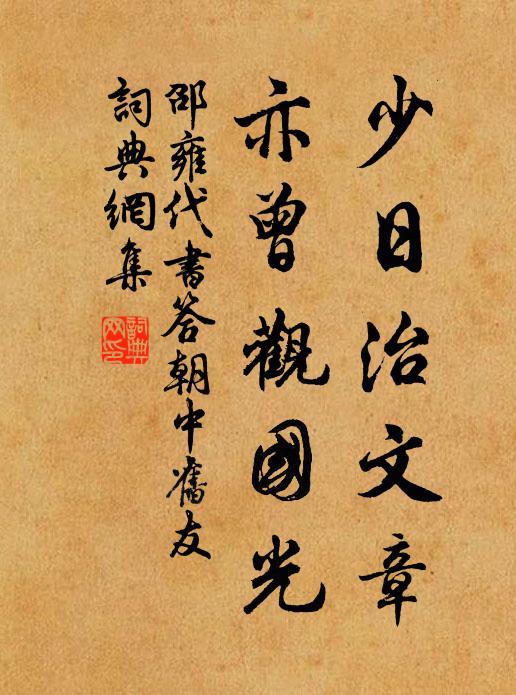 少日治文章
亦曾觀國光
邵雍代書答朝中舊友
詞典網集
詞典網印